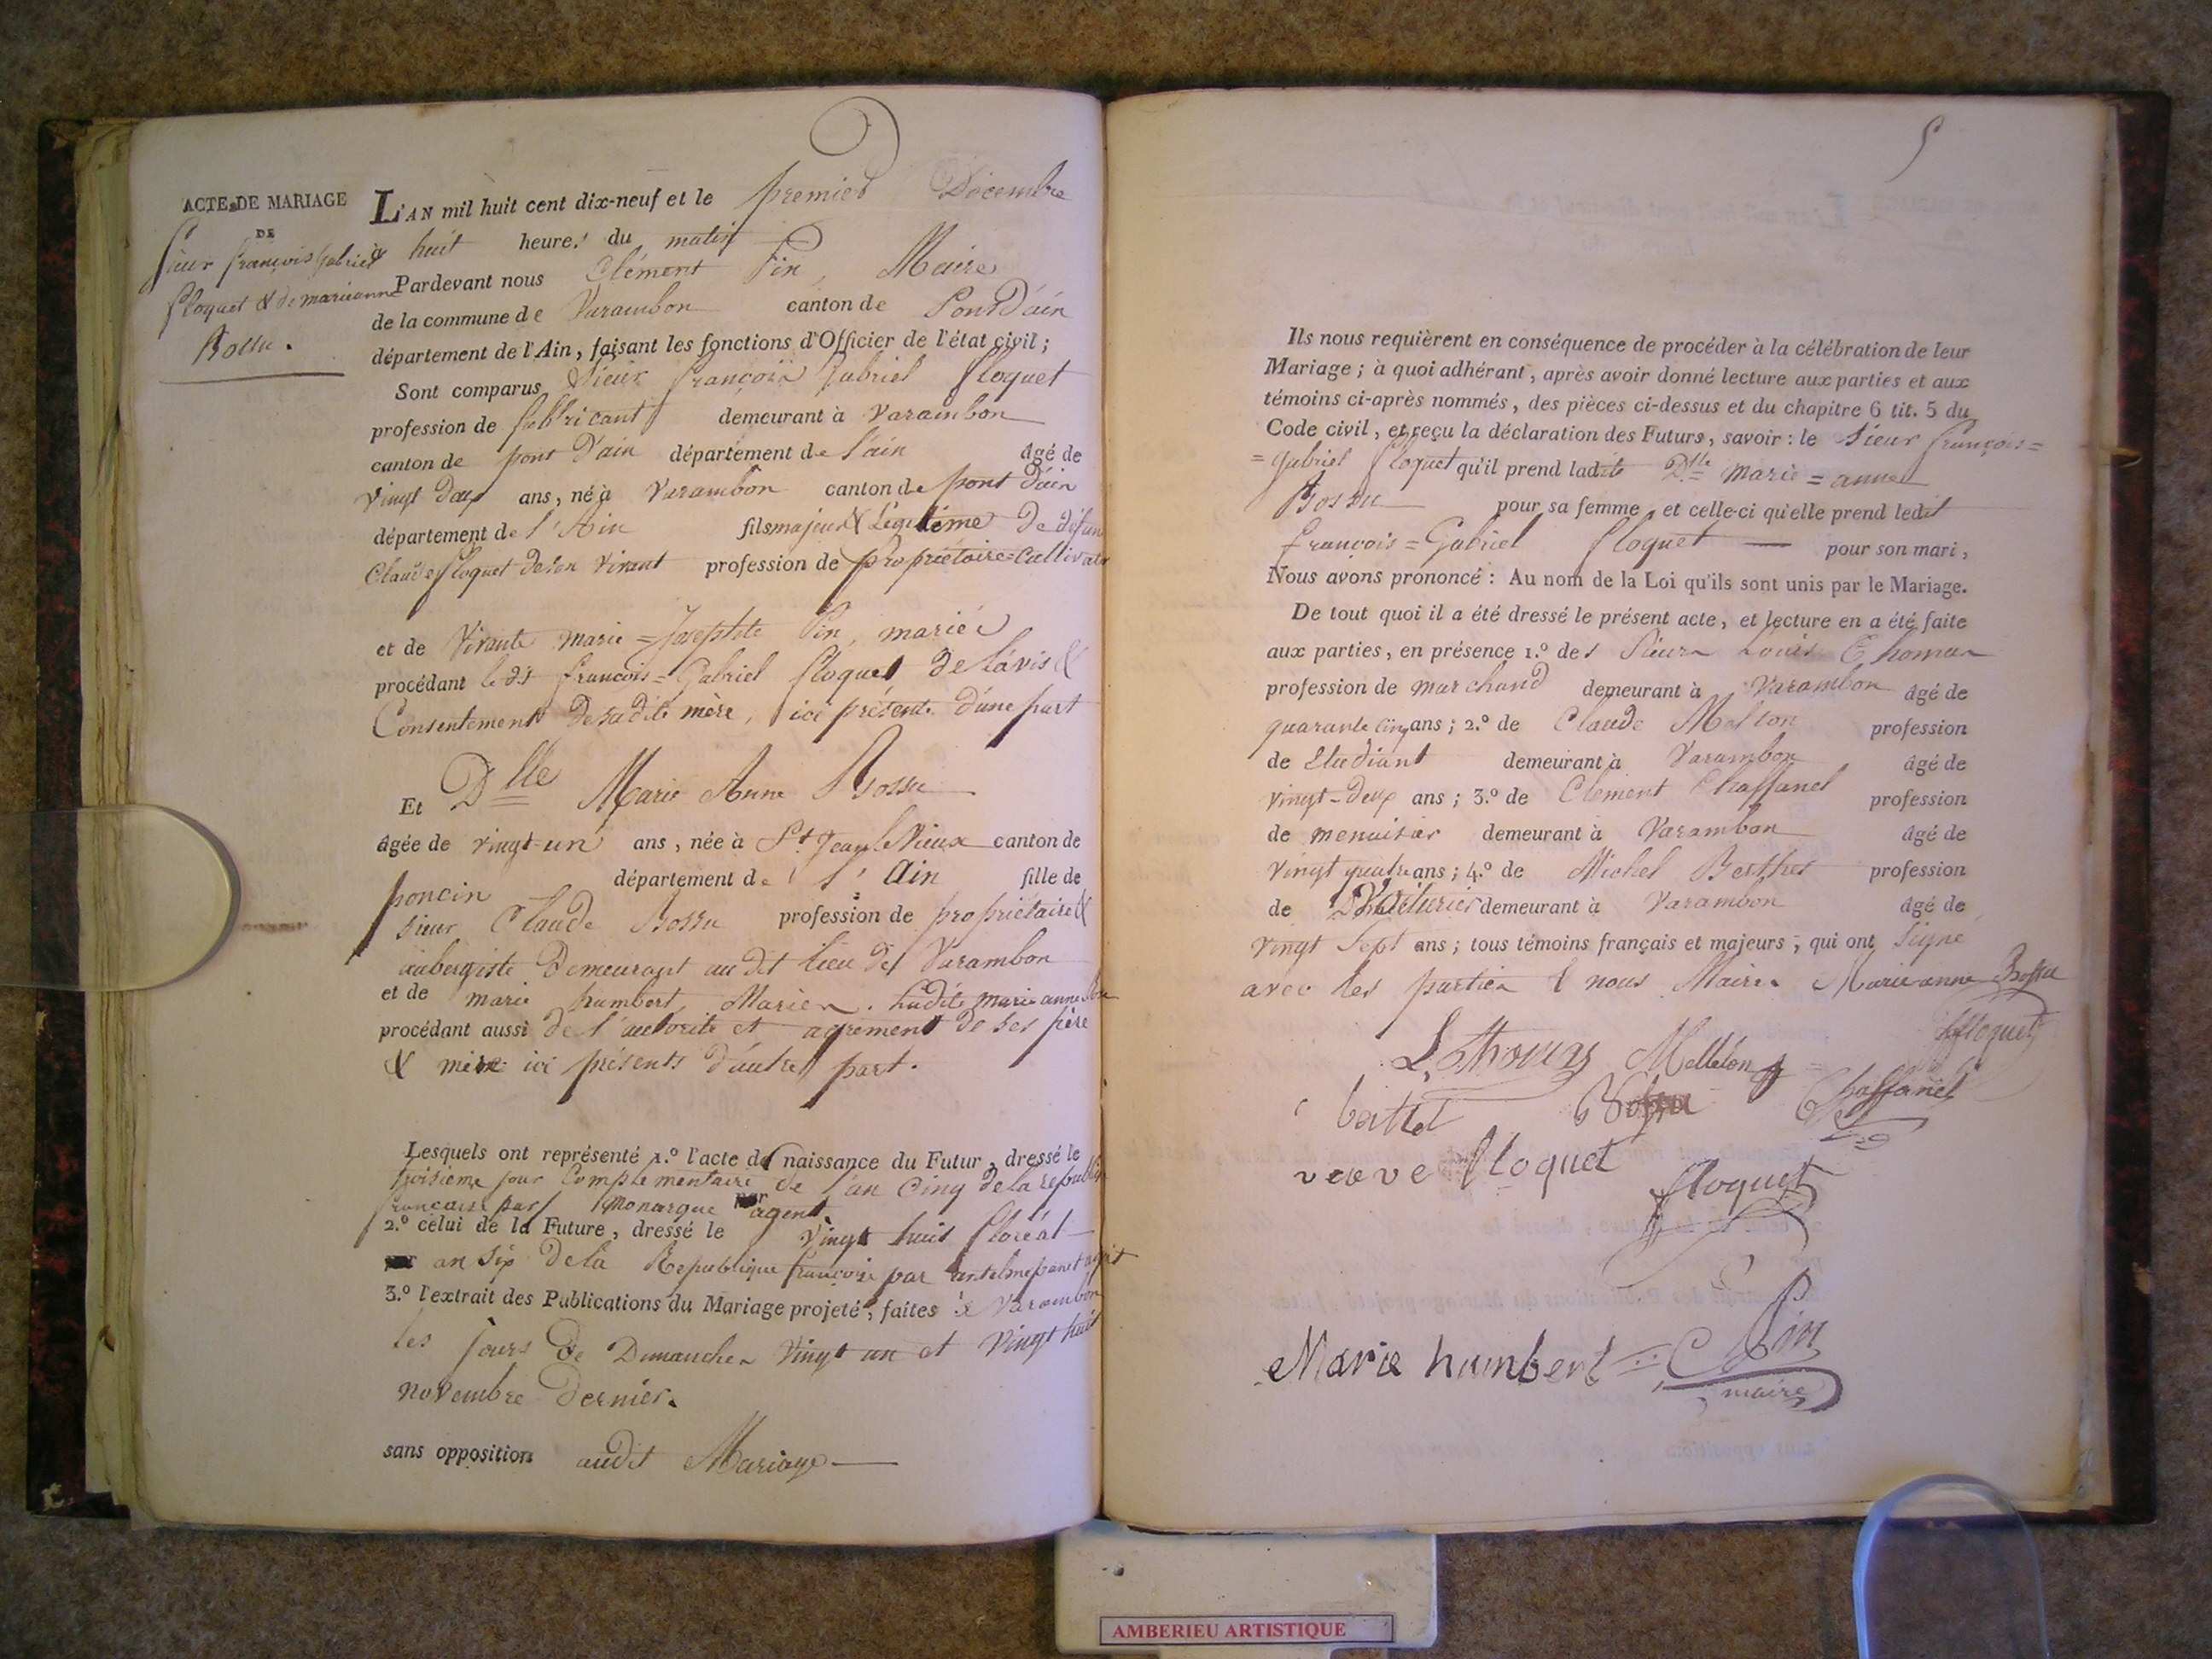 ACTE DE MARIAGE
DE
Sieur françois gabriel
floquet & de marieanne
Bossu.
L'AN mil huit cent dix-neuf et le premier Décembre
à huit heures du matin
Pardevant nous Clément Pin, Maire
de la commune de Varambon canton de Pont D'ain
département de l'Ain, faisant les fonctions d'Officier de l'état civil;
Sont comparus Sieur françois Gabriel floquet
profession de fabricant demeurant à Varambon
canton de pont D'ain département de l'ain âgé de
vingt deux ans, né à Varambon canton de pont d'ain
département de l'Ain fils majeur & Légitime de défunt
Claude floquet de son vivant profession de propriétaire=Cultivateur
et de vivante marie=Josephte Pin, mariés
procédant ledit françois=Gabriel floquet de l'avis &
Consentement de sadite mère, ici présente d'une part
Et Dlle Marie Anne Bossu
âgée de vingt-un ans, née à St Jean le Vieux canton de
poncin département de l'Ain fille de
sieur Claude Bossu profession de propriétaire &
aubergiste demeurant au dit lieu de Varambon
et de marie humbert, Mariés. Ladite marie anne
procédant aussi de l'autorité et agrément de ses père
& mère ici présents d'autre part.
Lesquels ont représenté 1.º l'acte de naissance du Futur, dressé le
troisieme jour Complementaire de l'an Cinq de la républiq
française par monarque agent
2.º celui de la Future, dressé le vingt huit floréal
an six de la République françoise par antelme panet agent
3.º l'extrait des Publications du Mariage projeté, faites à Varambon
les jours de Dimanches vingt un et vingt huit
novembre dernier.
sans opposition audit Mariage
5
Ils nous requièrent en conséquence de procéder à la célébration de leur
Mariage; à quoi adhérant, après avoir donné lecture aux parties et aux
témoins ci-après nommés, des pièces ci-dessus et du chapitre 6 tit. 5 du
Code civil, et reçu la déclaration des Futurs, savoir: le sieur françois=
=gabriel floquet qu'il prend ladite Dlle marie=anne
Bossu pour sa femme, et celle-ci qu'elle prend ledit
françois=Gabriel floquet pour son mari,
Nous avons prononcé: Au nom de la Loi qu'ils sont unis par le Mariage.
De tout quoi il a été dressé le présent acte, et lecture en a été faite
aux parties, en présence 1.º des Sieurs Louis Thomas
profession de marchand demeurant à Varambon âgé de
quarante cinq ans; 2.º de Claude profession
de Etudiant demeurant à Varambon âgé de
vingt-deux ans; 3.º de Clément Chaffanel profession
de menuisier demeurant à Varambon âgé de
vingt quatre ans; 4.º de Michel Berthet profession
de Voiturier demeurant à Varambon âgé de
vingt Sept ans; tous témoins français et majeurs, qui ont signé
avec les parties & nous Maire. Marie anne Bossu
floquet
L, Thomas Melleton
bertet Bossu Chaffanel
veve floquet
floquet
Marie humbert = C Pin
maire
AMBERIEU ARTISTIQUE